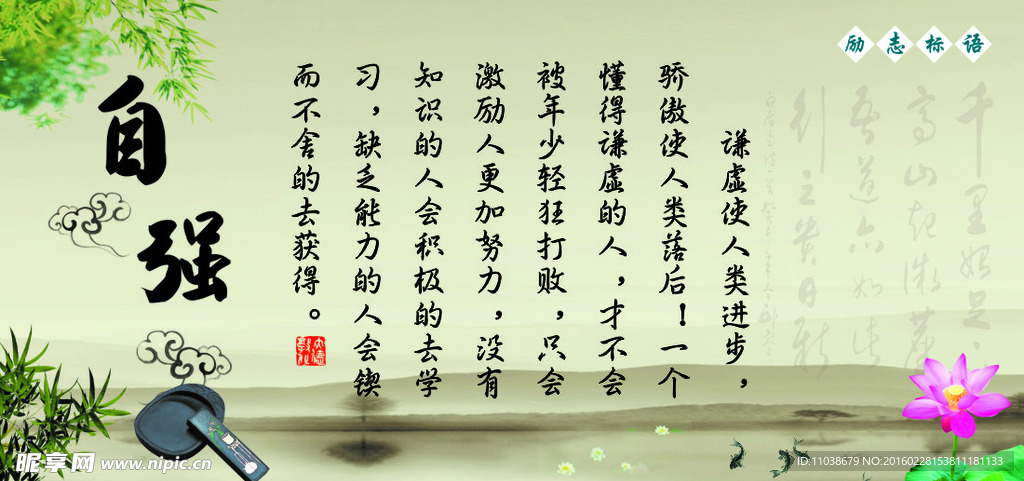 励志标语
自强
谦虚使人类进步，
骄傲使人类落后！一个
懂得谦虚的人，才不会
被年少轻狂打败，只会
激励人更加努力，没有
知识的人会积极的去学
习，缺乏能力的人会锲
而不舍的去获得。
千里始足、
高山起微尘
吾道亦如此
行之贵日新
昵享网 www.nipic.cn
ID:11038679 NO:20160228153811181133